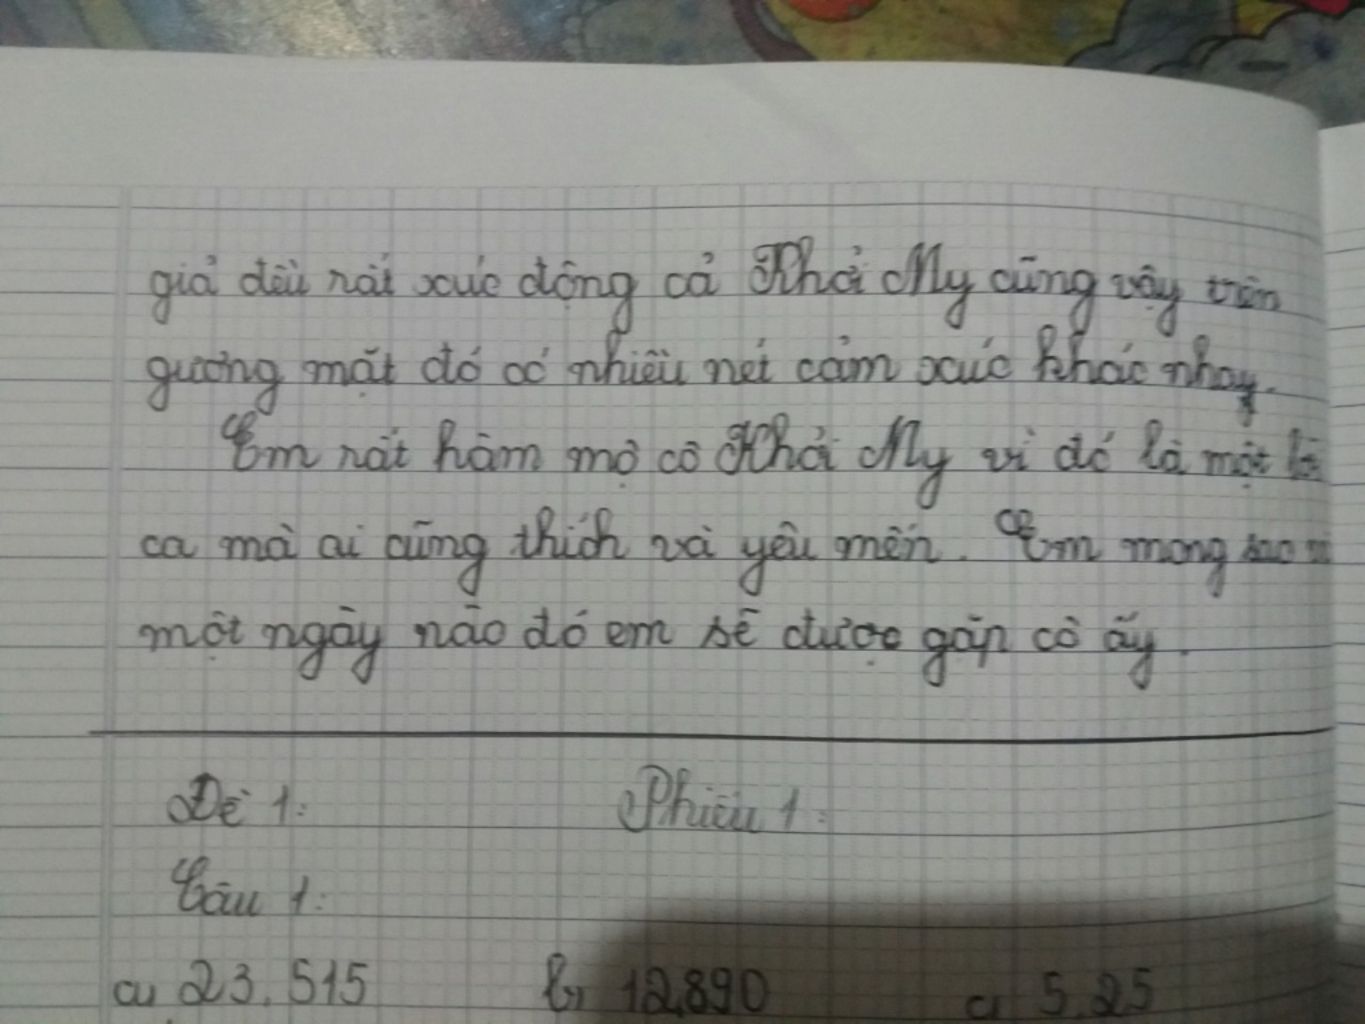 giả đều rất xúc động cả Khả My cũng vậy trên
gương mặt đó có nhiều nét cảm xúc khác nhay.
Em rất hâm mộ cô Khả My vì đó là một
ca mà ai cũng thích và yêu mến. Em mong sao
một ngày nào đó em sẽ được gặp cô ấy.
Đề 1: Phiếu 1:
Câu 1:
a, 23,515 b, 12,890 c, 5,25